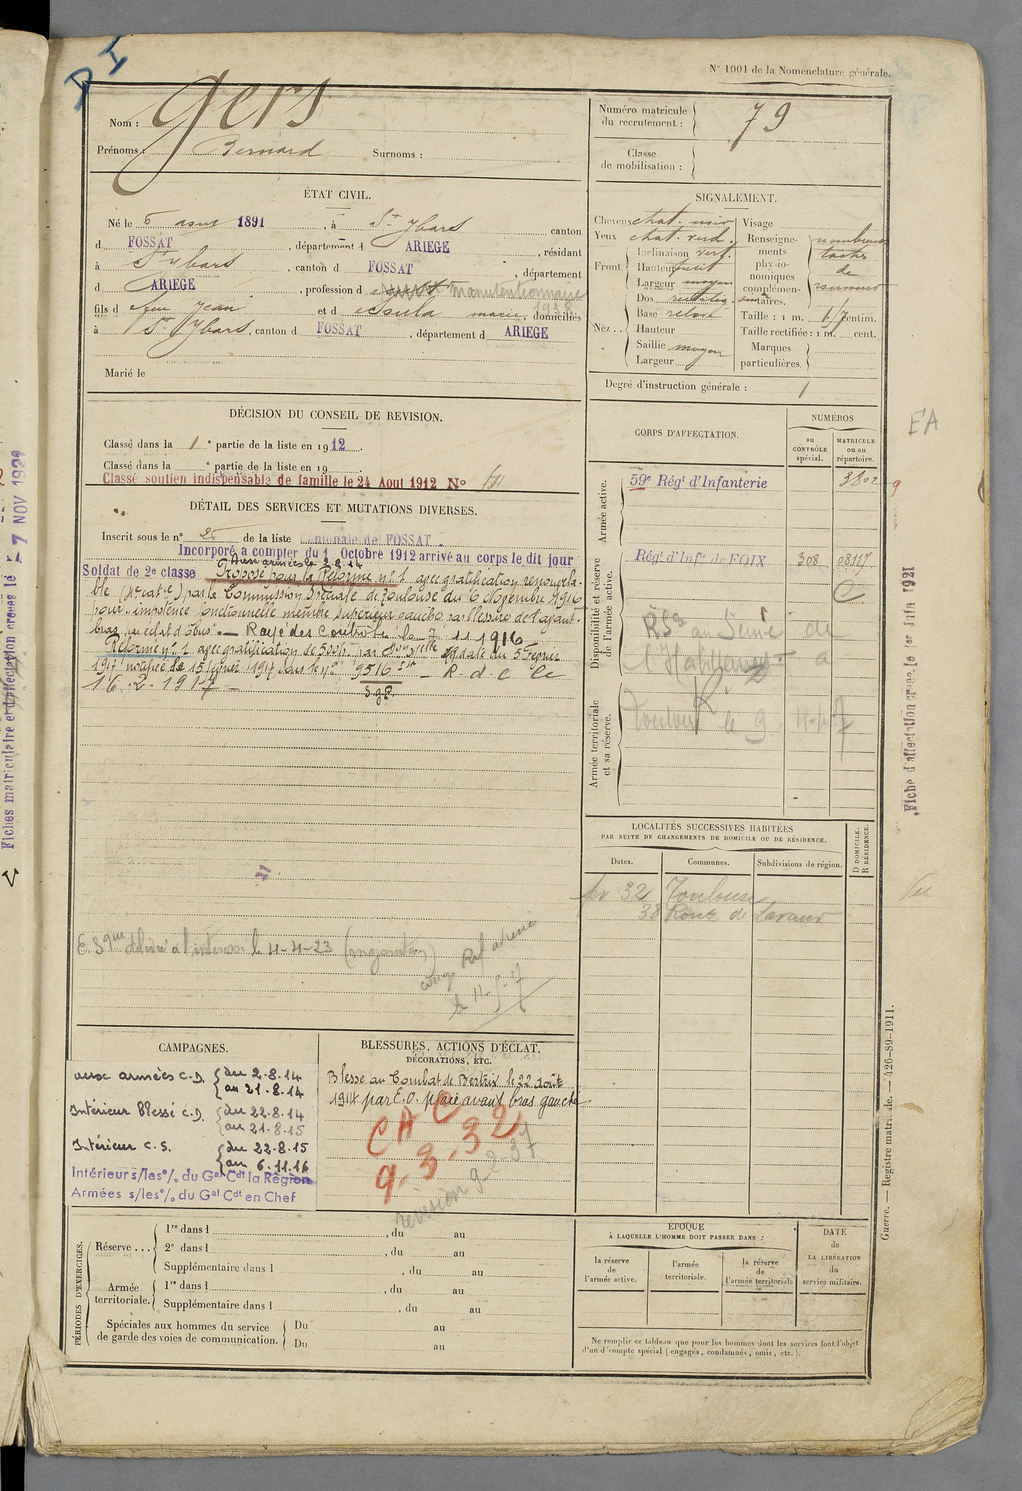 D I
N° 1001 de la Nomenclature générale.
Nom : Gers
Prénoms : Bernard Surnoms :
Numéro matricule du recrutement : 79
Classe de mobilisation :
ÉTAT CIVIL.
Né le 6 1891, à St Ybars canton
d FOSSAT, département d ARIEGE, résidant
à St Ybars, canton d FOSSAT, département
d ARIEGE, profession d manutentionnaire
1938
fils d feu Jean et d Soula marie, domiciliés
à St Ybars, canton d FOSSAT, département d ARIEGE
Marié le
SIGNALEMENT.
Cheveux chat. noir
Yeux chat. verd.
Front Inclinaison vert.
Hauteur
Largeur moyen
Nez Dos rectilig. sinueux
Base relevé
Hauteur
Saillie moyen
Largeur
Visage
Renseignements physionomiques complémentaires. nombreuses taches de rousseur
Taille : 1 m. 67 centim.
Taille rectifiée : 1 m. cent.
Marques particulières.
Degré d'instruction générale : 1
DÉCISION DU CONSEIL DE REVISION.
Classé dans la 1e partie de la liste en 1912.
Classé dans la e partie de la liste en 19
Classé soutien indispensable de famille le 24 Aout 1912 N°
DÉTAIL DES SERVICES ET MUTATIONS DIVERSES.
Inscrit sous le n° 25 de la liste Cantonale de FOSSAT.
Incorporé à compter du 1 Octobre 1912 arrivé au corps le dit jour
Aux armées le 2.8.14
Soldat de 2e classe Proposé pour la Réforme n° 1 avec gratification renouvela-
ble par la Commission Spéciale de Toulouse du 6 Novembre 1916
pour "impotence fonctionnelle membre supérieur gauche par blessure de l'avant-
bras par éclat d'obus". — Rayé des Contrôles le 7.11.1916
Réformé n° 1 avec gratification de par date du 5 Février
1917 notifiée le 15 1917 sous le n° 9516 — R. d. C le
16.2.1917 —
S.g.R.
21
E. S délivré à l'intéressé le 4-4-23
le 11-5-17
CORPS D'AFFECTATION.
NUMÉROS
au CONTRÔLE spécial.
MATRICULE ou au répertoire.
Armée active.
59e Régt d'Infanterie 3802
Disponibilité et réserve de l'armée active.
Régt d'Infie de FOIX 308 08117
C
RSa au Service de
l'Habillement à
Toulouse le 9
Armée territoriale et sa réserve.
EA
LOCALITÉS SUCCESSIVES HABITÉES
PAR SUITE DE CHANGEMENTS DE DOMICILE OU DE RÉSIDENCE.
Dates. Communes. Subdivisions de région. D DOMICILE. R RÉSIDENCE.
32 Toulouse
38 Route de Lavaur
Vu
CAMPAGNES.
aux armées C.D. du 2.8.14
au 21.8.14
Intérieur Blessé C.D. du 22.8.14
au 21.8.15
Intérieur C.S. du 22.8.15
au 6.11.16
Intérieur s/les o/. du Gal Cdt la Région
Armées s/les o/. du Gal Cdt en Chef
BLESSURES, ACTIONS D'ÉCLAT,
DÉCORATIONS, ETC.
Blessé au Combat de Bertrix le 22 août
1914 par E.O. plaie avant bras gauche
C A C
9.3.32
révision 9-2 37
PÉRIODES D'EXERCICES.
Réserve... 1re dans l , du au
2e dans l , du au
Supplémentaire dans l , du au
Armée territoriale. 1re dans l , du au
Supplémentaire dans l , du au
Spéciales aux hommes du service de garde des voies de communication. Du au
Du au
ÉPOQUE
À LAQUELLE L'HOMME DOIT PASSER DANS :
la réserve de l'armée active.
l'armée territoriale.
la réserve de l'armée territoriale
DATE de LA LIBÉRATION du service militaire.
Ne remplir ce tableau que pour les hommes dont les services font l'objet
d'un décompte spécial (engagés, condamnés, omis, etc.).
Guerre. — Registre matricule. — 426-89-1911.
Fiche d'affectation créée le 1er Juin 1921
Fiches matriculaire et d'affectation créées le 7 NOV 1929